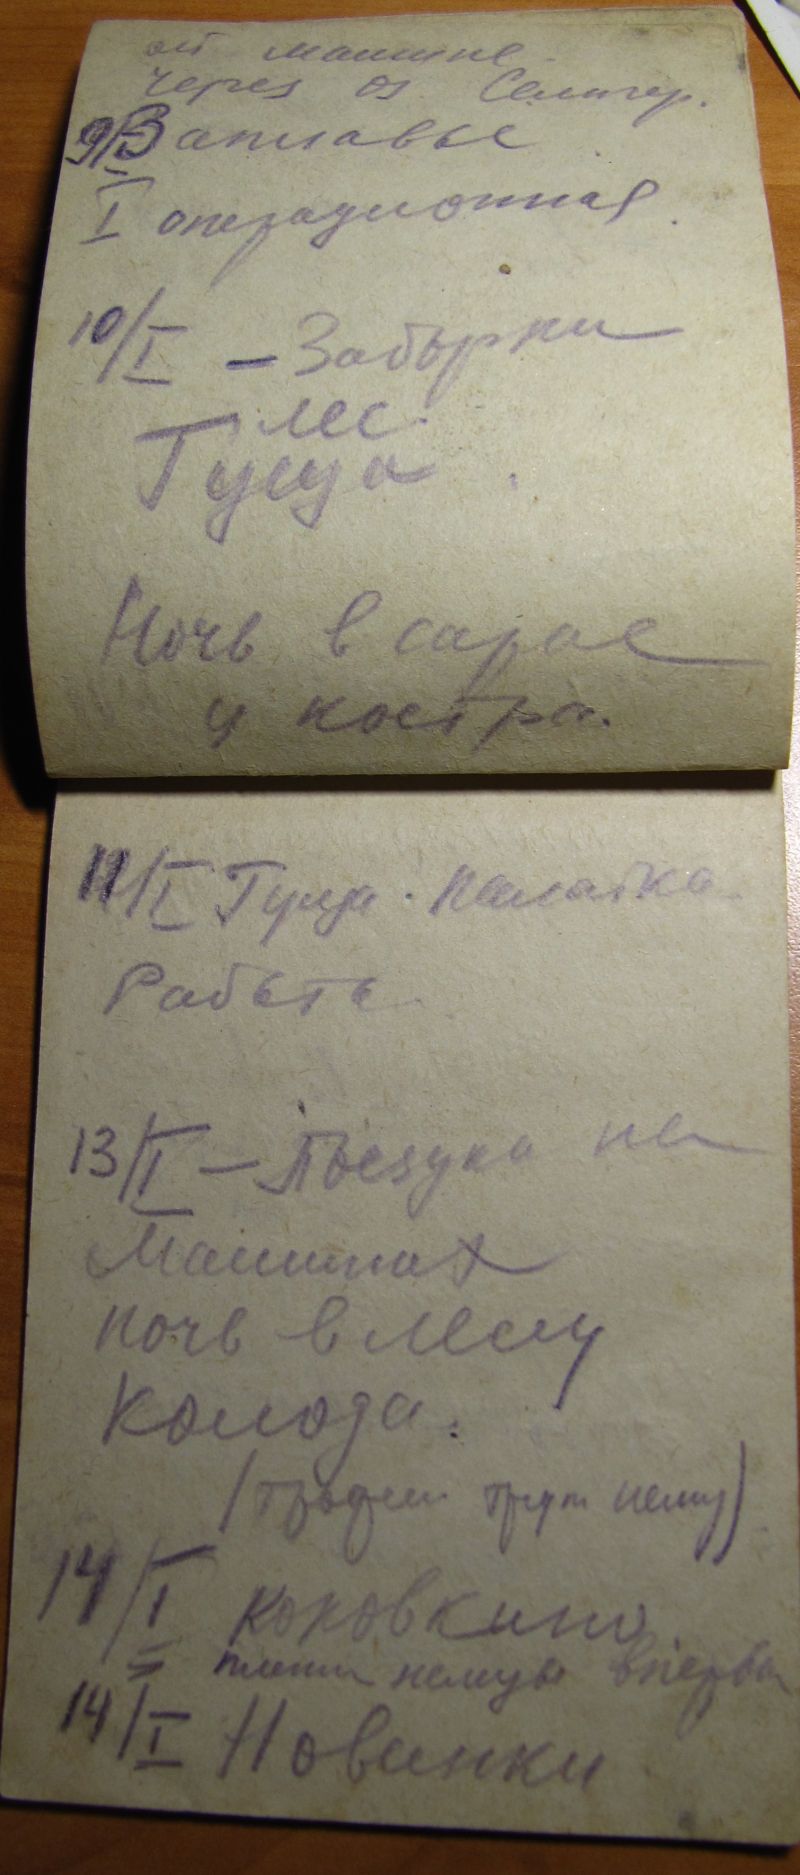 ой машине.
через оз Селигер.
9/I Заплавье
I операционная.
10/I – Заборки
лес.
Гуща.
Ночь в сарае
у костра.
11/I Гуща. палатка
Работа.
13/I – Поездка на
Машинах
ночь в лесу
Колода.
(трофеи труп немц)
14/I Коковкино
пленн немцы впервы
14/I Новинки